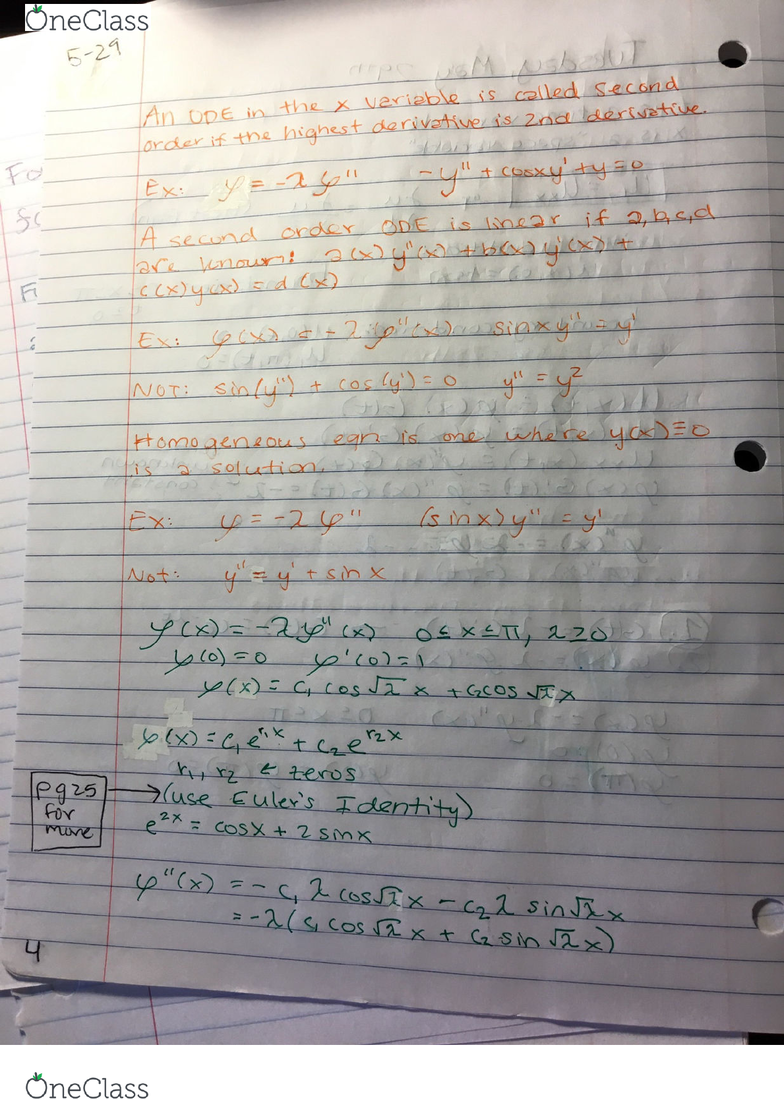 OneClass
5-29
An ODE in the x variable is called second
order if the highest derivative is 2nd derivative.
Ex: φ = -λφ" -y" + cosxy' + y = 0
A second order ODE is linear if a,b,c,d
are known: a(x)y"(x) + b(x)y'(x) +
c(x)y(x) = d(x)
Ex: φ(x) = -λφ"(x) sinxy" = y'
NOT: sin(y") + cos(y') = 0 y" = y²
Homogeneous eqn is one where y(x)≡0
is a solution.
Ex: φ = -λφ" (sinx)y" = y'
Not: y" = y' + sin x
φ(x) = -λφ"(x) 0≤x≤π, λ≥0
φ(0)=0 φ'(0)=1
φ(x) = c₁ cos√λ x + c₂cos √λ x
φ(x) = c₁e^r₁x + c₂e^r₂x
r₁, r₂ ← zeros
pg25 → (use Euler's Identity)
for
more
e^2x = cosx + 2 sinx
φ"(x) = -c₁ λ cos√λ x - c₂ λ sin√λ x
= -λ(c₁ cos √λ x + c₂ sin √λ x)
4
OneClass